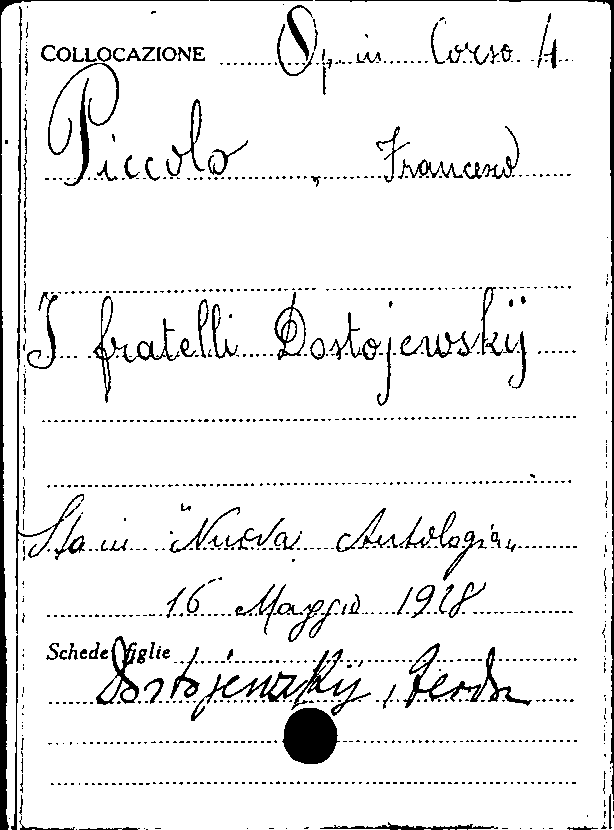 COLLOCAZIONE Op. in Corso 4
Piccolo, Francesco
I fratelli Dostojewskij
Sta in "Nuova Antologia„
16 Maggio 1928
Schede figlie
Dostojewskij,